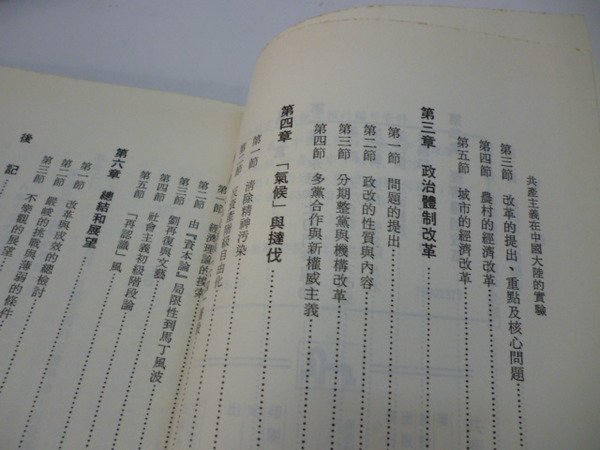 共產主義在中國大陸的實驗
第三節 改革的提出、重點及核心問題
第四節 農村的經濟改革
第五節 城市的經濟改革
第三章 政治體制改革
第一節 問題的提出
第二節 政改的性質與內容
第三節 分期整黨與機構改革
第四節 多黨合作與新權威主義
第四章 「氣候」與撻伐
第一節 清除精神污染
第二節 反資產階級自由化
第一節 經濟理論的探
第三節 由『資本論』局限性到馬丁風波
第三節 劉再復與文藝
第四節 社會主義初級階段論
第五節 「再認識」風
第六章 總結和展望
第一節 改革與成效的總檢討
第二節 嚴峻的挑戰與薄弱的條件
第三節 不樂觀的展望
後 記